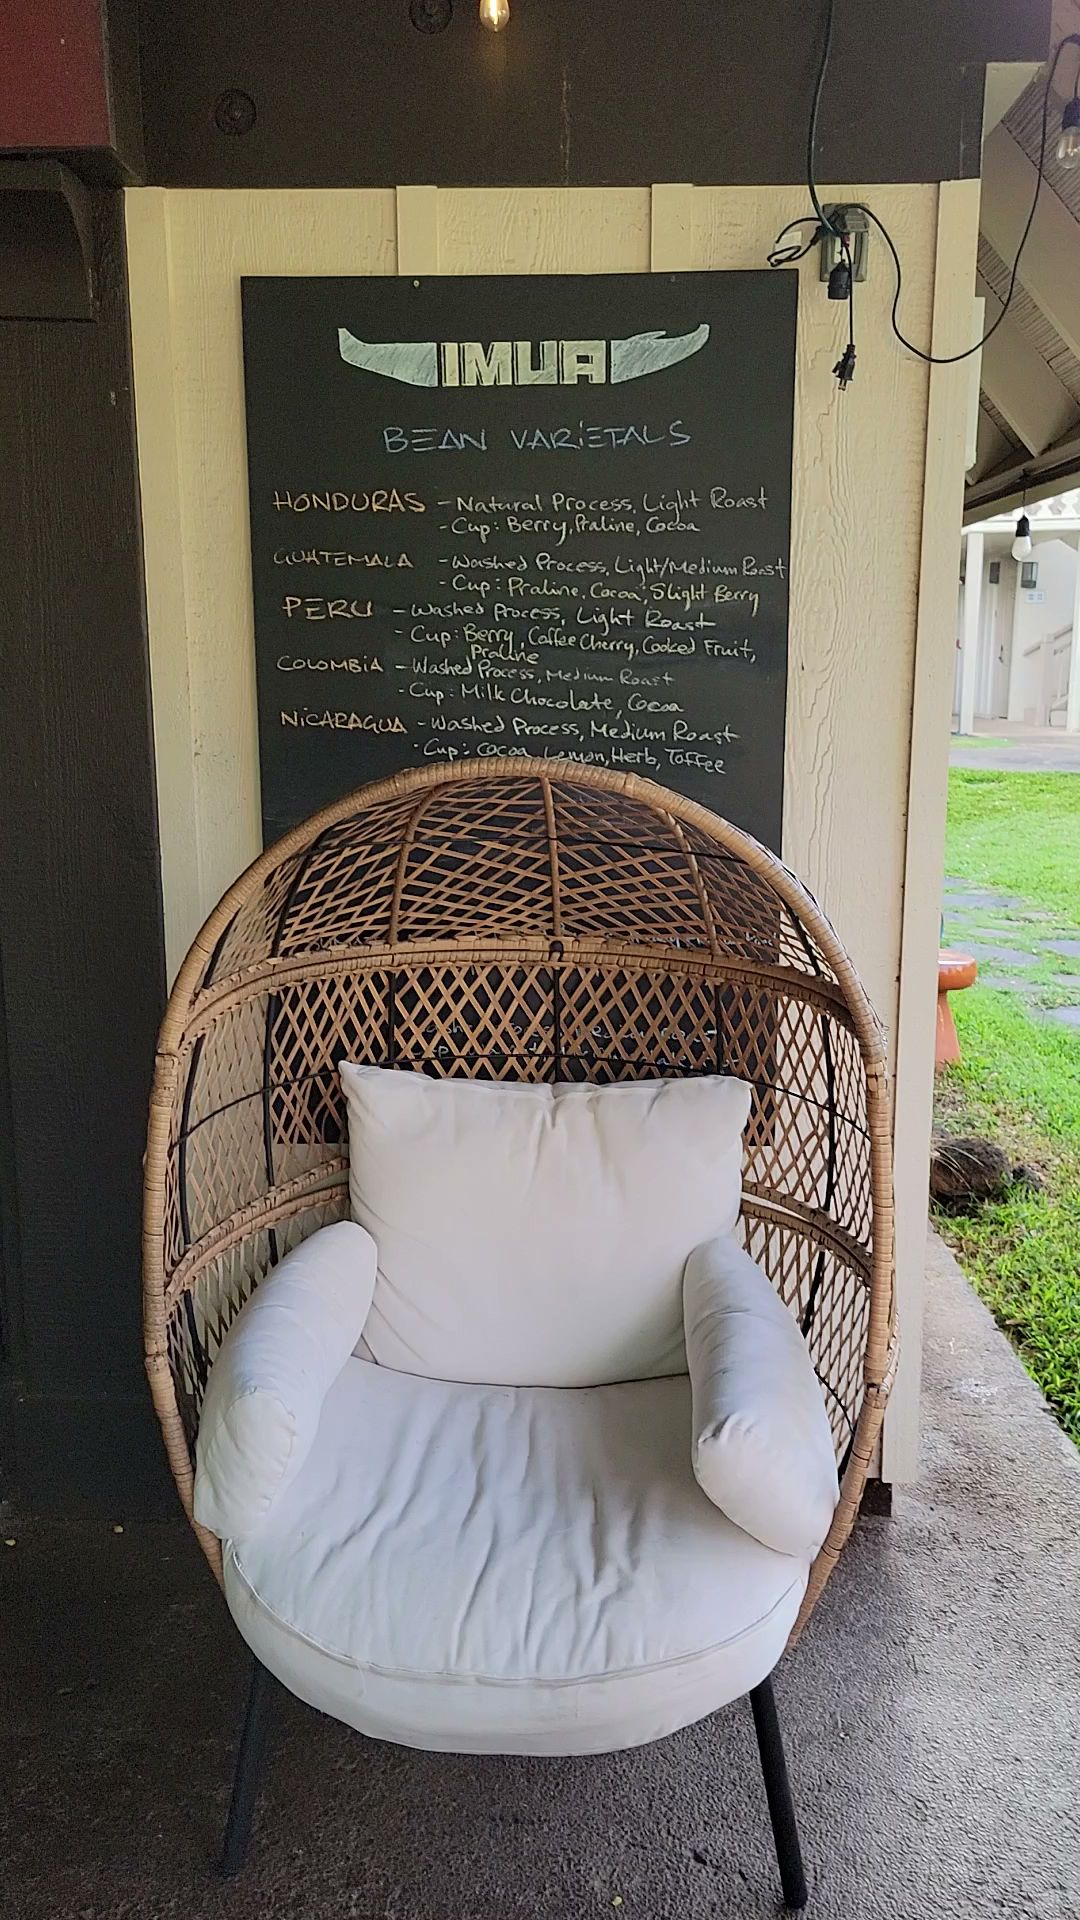 IMUA
BEAN VARIETALS
HONDURAS - Natural Process, Light Roast
- Cup: Berry, Praline, Cocoa
GUATEMALA - Washed Process, Light/Medium Roast
- Cup: Praline, Cocoa, Slight Berry
PERU - Washed Process, Light Roast
- Cup: Berry, Coffee Cherry, Cooked Fruit,
Praline
COLOMBIA - Washed Process, Medium Roast
- Cup: Milk Chocolate, Cocoa
NICARAGUA - Washed Process, Medium Roast
- Cup: Cocoa, Lemon, Herb, Toffee